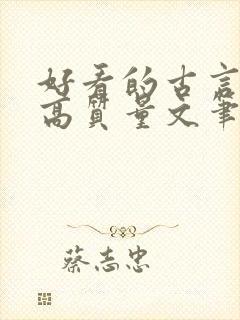 好看的古言
高质量文笔
蔡志忠